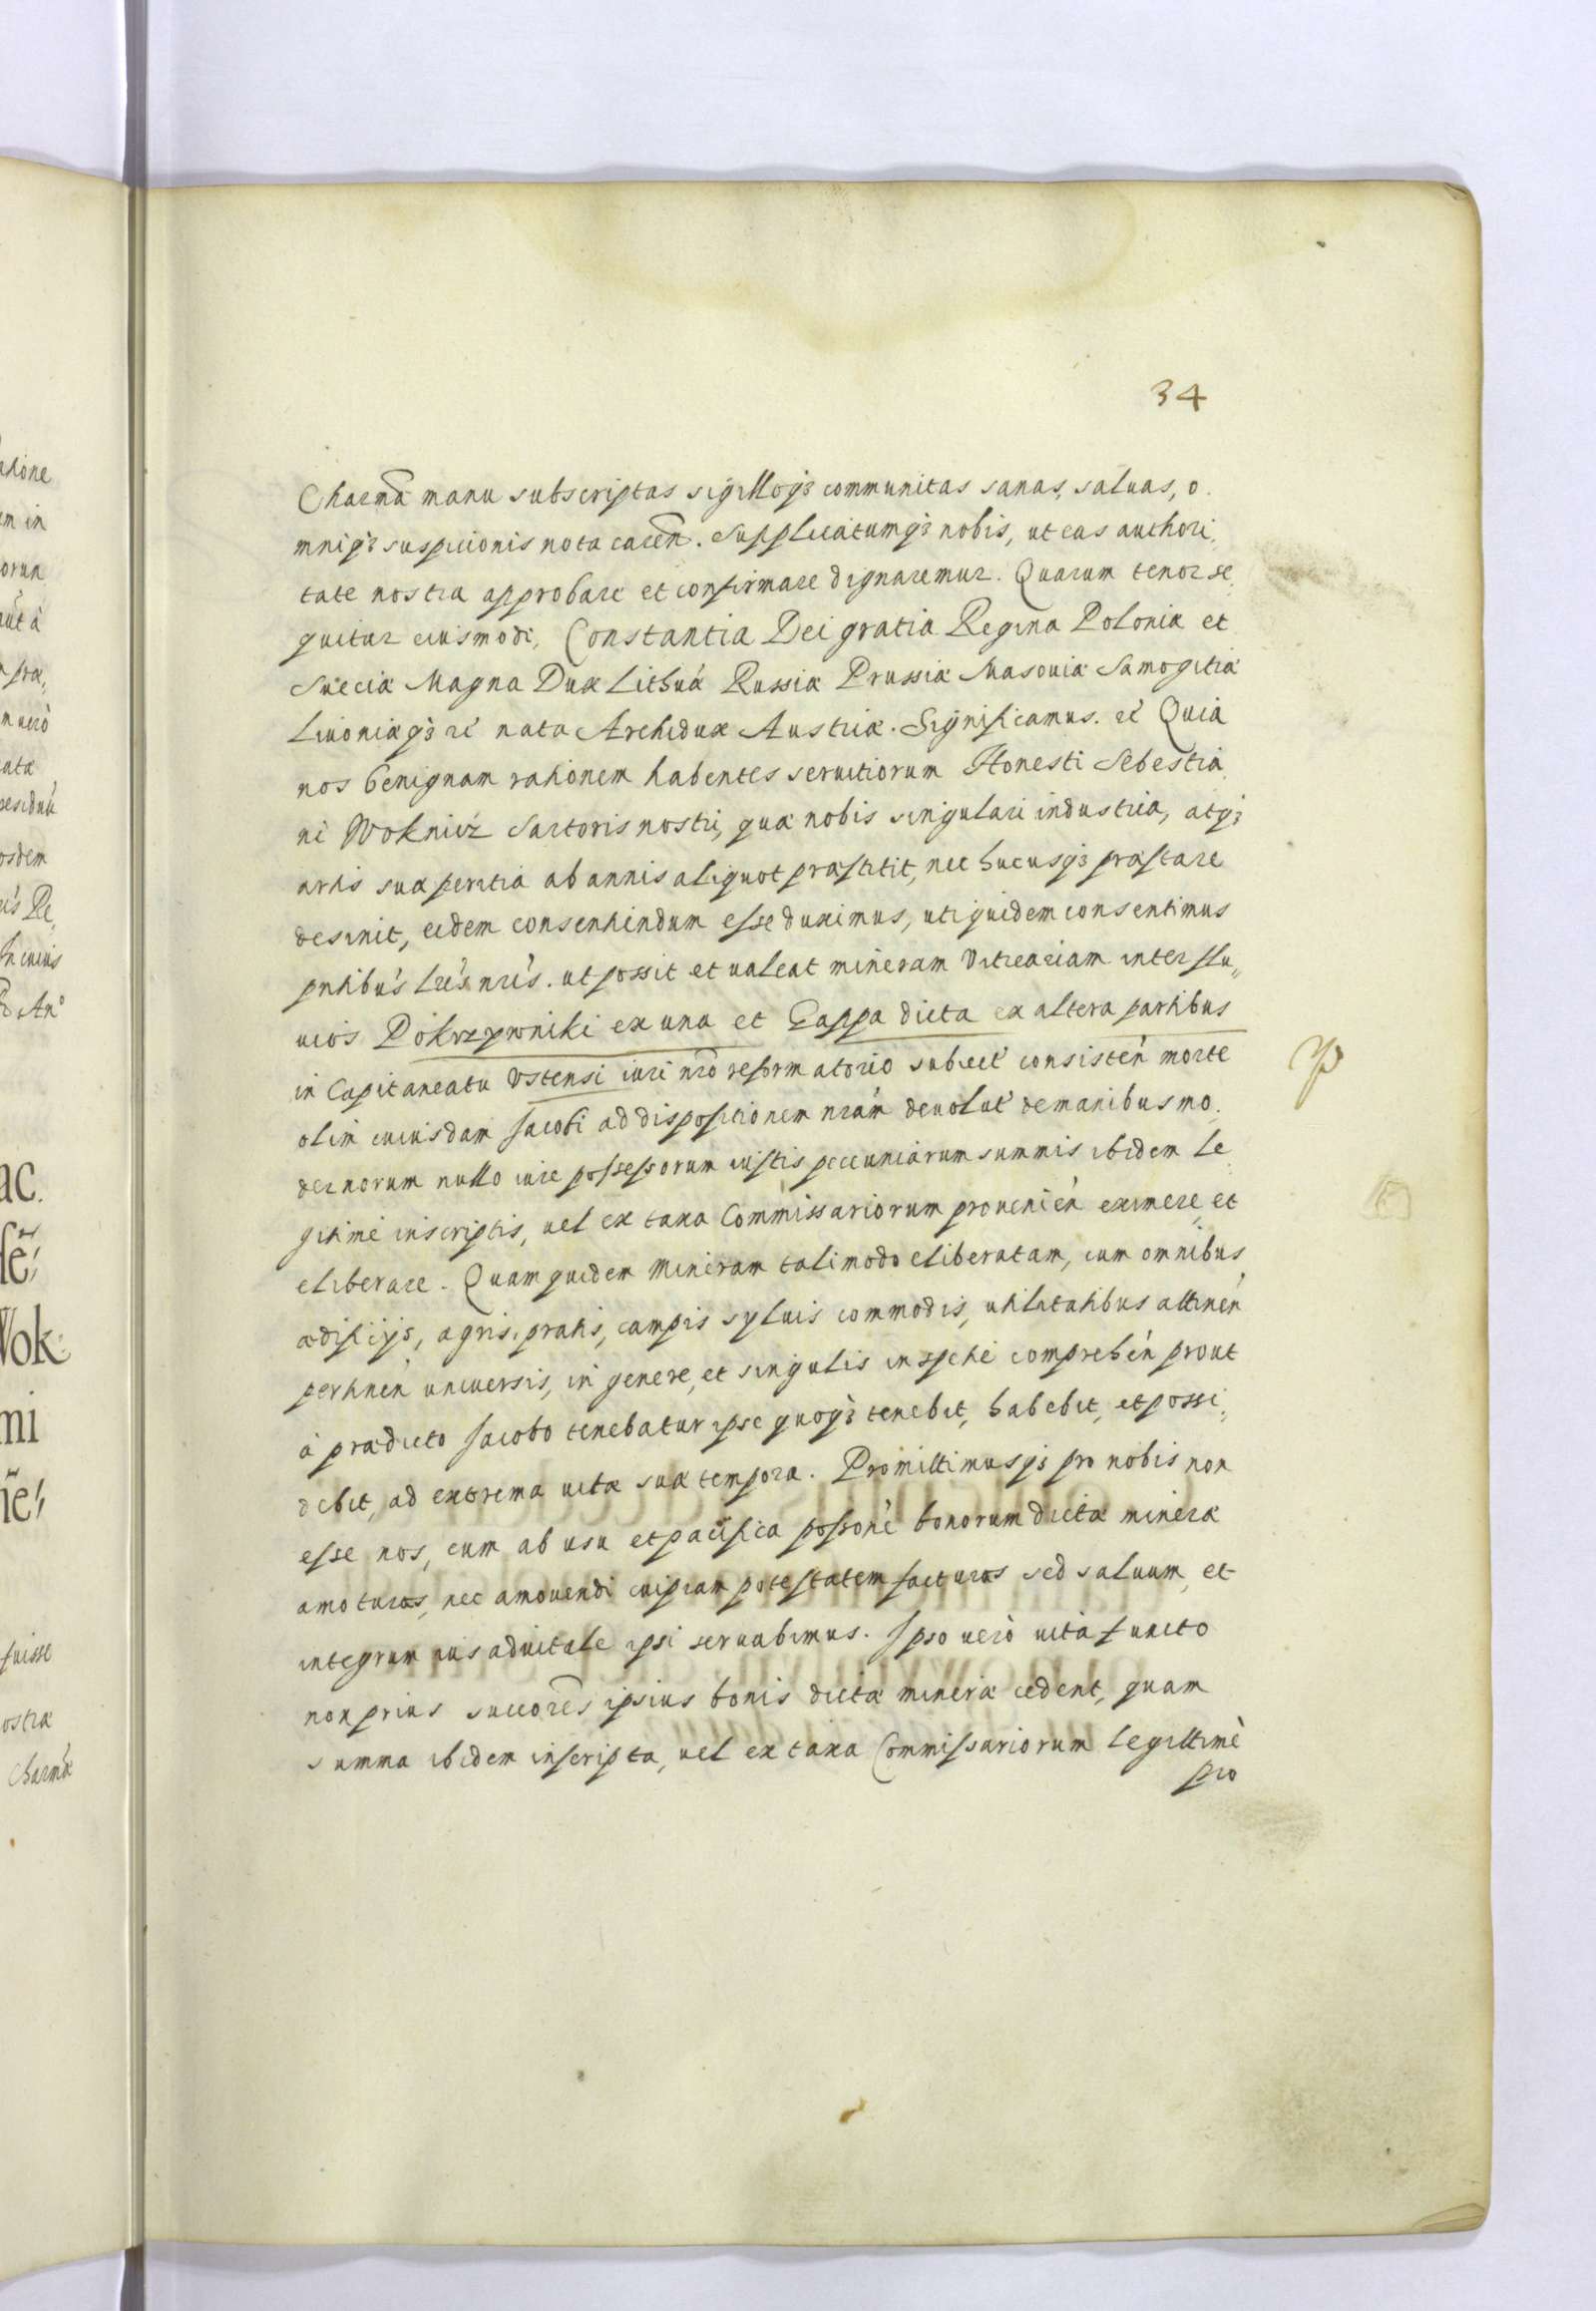 34
Charmã manu subscriptas sigilloqꝫ communitas sanas, saluas, o
mniqꝫ suspicionis nota carẽn. Supplicatumqꝫ nobis, ut eas authori
tate nostra approbare et confirmare dignaremur. Quarum tenor se
quitur eiusmodi, Constantia Dei gratia Regina Poloniæ et
Sueciæ Magna Dux Lithuá Russiæ Prussiæ Masouiæ Samogitiæ
Liuoniæqꝫ ꝛć nata Archidux Austriæ. Significamus. ꝛć Quia
nos benignam rationem habentes seruitiorum Honesti Sebestia
ni Woknicz Sartoris nostri, quæ nobis singulari industria, atqꝫ
artis suæ peritia ab annis aliquot præstitit, nec hucusqꝫ præstare
desinit, eidem consentiendum esse duximus, uti quidem consentimus
pntibús lrís nrís. ut possit et ualeat mineram vitreariam inter flu„
uios Pokrzywniki ex una et Gappa dicta ex altera partibus
in Capitaneatu Vstensi iuri nrõ reformatorio subiect́ consisteń morte
olim cuiusdam Jacobi ad dispositionem nrám deuolut́ de manibus mo
dernorum nullo iure possessorum iustis pecuniarum summis ibidem le
gitime inscriptis, uel ex taxa Commissariorum prouenień eximere, et
eliberare. Quam quidem Mineram tali modo eliberatam, cum omnibus
ædificijs, agris, pratis, campis syluis commodis, utilitatibus attineń
pertineń uniuersis, in genere, et singulis in spcie comprehéń prout
à prædicto Jacobo tenebatur ipse quoqꝫ tenebit, habebit, et possi„
debit, ad extrema uitæ suæ tempora. Promittimusqꝫ pro nobis non
esse nos, eum ab usu et pacifica possoné bonorum dictæ mineræ
amoturos, nec amouendi cuipiam potestatem facturos sed saluum, et
integrum ius aduitale ipsi seruabimus. Ipso uerò uita functo
non prius succorẽs ipsius bonis dictæ mineræ cedent, quam
summa ibidem inscripta, uel ex taxa Commissariorum legittimè
pro